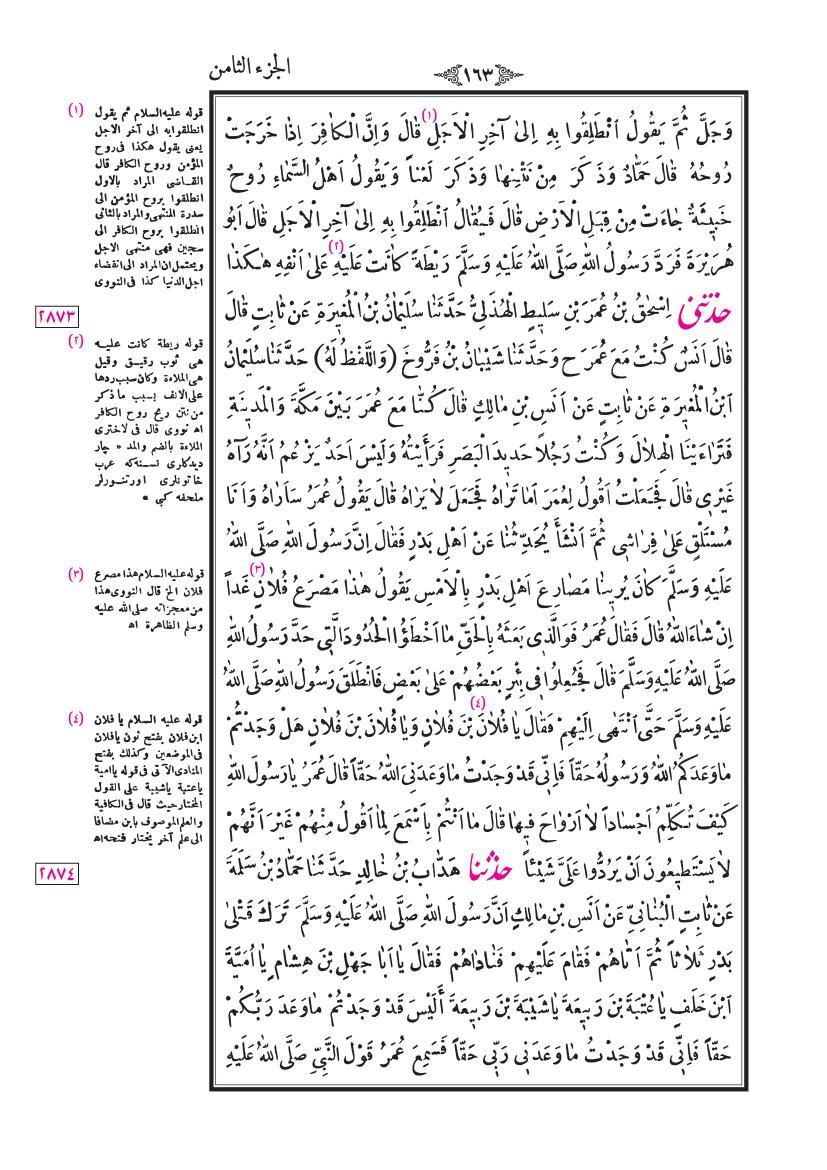 ١٦٣
الجزء الثامن
وَجَلَّ ثُمَّ يَقُولُ اَنْطَلِقُوا بِهِ اِلىٰ آخِرِ الْاَجَلِ (١) قَالَ وَاِنَّ الْكَافِرَ اِذَا خَرَجَتْ
رُوحُهُ قَالَ حَمَّادٌ وَذَكَرَ مِنْ نَتْنِهَا وَذَكَرَ لَعْناً وَيَقُولُ اَهْلُ السَّمَاءِ رُوحٌ
خَبِيثَةٌ جَاءَتْ مِنْ قِبَلِ الْاَرْضِ قَالَ فَيُقَالُ اَنْطَلِقُوا بِهِ اِلىٰ آخِرِ الْاَجَلِ قَالَ اَبُو
هُرَيْرَةَ فَرَدَّ رَسُولُ اللهِ صَلَّى اللهُ عَلَيْهِ وَسَلَّمَ رَيْطَةً كَانَتْ عَلَيْهِ (٢) عَلىٰ اَنْفِهِ هٰكَذَا
حدثنى اِسْحٰقُ بْنُ عُمَرَ بْنِ سَلِيطٍ الْهُذَلِيُّ حَدَّثَنَا سُلَيْمَانُ بْنُ الْمُغِيرَةِ عَنْ ثَابِتٍ قَالَ
قَالَ اَنَسٌ كُنْتُ مَعَ عُمَرَ ح وَحَدَّثَنَا شَيْبَانُ بْنُ فَرُّوخَ (وَاللَّفْظُ لَهُ) حَدَّثَنَا سُلَيْمَانُ
ابْنُ الْمُغِيرَةِ عَنْ ثَابِتٍ عَنْ اَنَسِ بْنِ مَالِكٍ قَالَ كُنَّا مَعَ عُمَرَ بَيْنَ مَكَّةَ وَالْمَدِينَةِ
فَتَرَاءَيْنَا الْهِلَالَ وَكُنْتُ رَجُلاً حَدِيدَ الْبَصَرِ فَرَأَيْتُهُ وَلَيْسَ اَحَدٌ يَزْعُمُ اَنَّهُ رَآهُ
غَيْرِى قَالَ فَجَعَلْتُ اَقُولُ لِعُمَرَ اَمَا تَرَاهُ فَجَعَلَ لَا يَرَاهُ قَالَ يَقُولُ عُمَرُ سَاَرَاهُ وَاَنَا
مُسْتَلْقٍ عَلىٰ فِرَاشِى ثُمَّ اَنْشَأَ يُحَدِّثُنَا عَنْ اَهْلِ بَدْرٍ فَقَالَ اِنَّ رَسُولَ اللهِ صَلَّى اللهُ
عَلَيْهِ وَسَلَّمَ كَانَ يُرِينَا مَصَارِعَ اَهْلِ بَدْرٍ بِالْاَمْسِ يَقُولُ هٰذَا مَصْرَعُ فُلَانٍ (٣) غَداً
اِنْ شَاءَ اللهُ قَالَ فَقَالَ عُمَرُ فَوَالَّذِى بَعَثَهُ بِالْحَقِّ مَا اَخْطَؤُا الْحُدُودَ الَّتِى حَدَّ رَسُولُ اللهِ
صَلَّى اللهُ عَلَيْهِ وَسَلَّمَ قَالَ فَجُعِلُوا فِى بِئْرٍ بَعْضُهُمْ عَلىٰ بَعْضٍ فَانْطَلَقَ رَسُولُ اللهِ صَلَّى اللهُ
عَلَيْهِ وَسَلَّمَ حَتَّى اَنْتَهٰى اِلَيْهِمْ فَقَالَ يَا فُلَانَ (٤) بْنَ فُلَانٍ وَيَا فُلَانَ بْنَ فُلَانٍ هَلْ وَجَدْتُمْ
مَا وَعَدَكُمُ اللهُ وَرَسُولُهُ حَقّاً فَاِنِّى قَدْ وَجَدْتُ مَا وَعَدَنِىَ اللهُ حَقّاً قَالَ عُمَرُ يَا رَسُولَ اللهِ
كَيْفَ تُكَلِّمُ اَجْسَاداً لَا اَرْوَاحَ فِيهَا قَالَ مَا اَنْتُمْ بِاَسْمَعَ لِمَا اَقُولُ مِنْهُمْ غَيْرَ اَنَّهُمْ
لَا يَسْتَطِيعُونَ اَنْ يَرُدُّوا عَلَىَّ شَيْئاً حدثنا هَدَّابُ بْنُ خَالِدٍ حَدَّثَنَا حَمَّادُ بْنُ سَلَمَةَ
عَنْ ثَابِتٍ الْبُنَانِىِّ عَنْ اَنَسِ بْنِ مَالِكٍ اَنَّ رَسُولَ اللهِ صَلَّى اللهُ عَلَيْهِ وَسَلَّمَ تَرَكَ قَتْلىٰ
بَدْرٍ ثَلَاثاً ثُمَّ اَتَاهُمْ فَقَامَ عَلَيْهِمْ فَنَادَاهُمْ فَقَالَ يَا اَبَا جَهْلِ بْنَ هِشَامٍ يَا اُمَيَّةَ
ابْنَ خَلَفٍ يَا عُتْبَةَ بْنَ رَبِيعَةَ يَا شَيْبَةَ بْنَ رَبِيعَةَ أَلَيْسَ قَدْ وَجَدْتُمْ مَا وَعَدَ رَبُّكُمْ
حَقّاً فَاِنِّى قَدْ وَجَدْتُ مَا وَعَدَنِى رَبِّى حَقّاً فَسَمِعَ عُمَرُ قَوْلَ النَّبِىِّ صَلَّى اللهُ عَلَيْهِ
(١) قوله عليه السلام ثم يقول
انطلقوابه الى آخر الاجل
يعنى يقول هكذا فى روح
المؤمن وروح الكافر قال
القاضى المراد بالاول
انطلقوا بروح المؤمن الى
سدرة المنتهى والمراد بالثانى
انطلقوا بروح الكافر الى
سجين فهى منتهى الاجل
ويحتمل ان المراد الى انقضاء
اجل الدنيا كذا فى النووى
٢٨٧٣
(٢) قوله ريطة كانت عليه
هى ثوب رقيق وقيل
هى الملاءة وكان سبب ردها
على الانف بسبب ما ذكر
من نتن ريح روح الكافر
اه نووى قال فى لاخترى
الملاءة بالضم والمد « چار
ديدكلرى نسنه كه عرب
خاتونلرى اورتنورلر
ملحفه كبى »
(٣) قوله عليه السلام هذا مصرع
فلان الخ قال النووى هذا
من معجزاته صلى الله عليه
وسلم الظاهرة اه
(٤) قوله عليه السلام يا فلان
ابن فلان بفتح نون يا فلان
فى الموضعين وكذلك بفتح
المنادى الآتى فى قوله يا امية
يا عتبة يا شيبة على القول
المختار حيث قال فى الكافية
والعلم الموصوف بابن مضافا
الى علم آخر يختار فتحه اه
٢٨٧٤